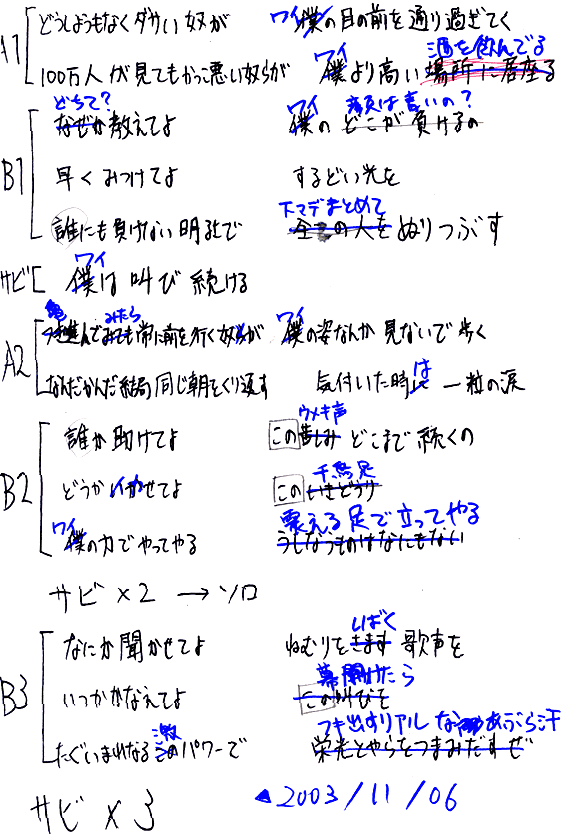 A1 どうしようもなくダサい奴が ワイ 僕の目の前を通り過ぎてく
100万人が見てもかっこ悪い奴らが ワイ 僕より高い 酒を飲んでる 場所に居座る
B1 どちて? なぜか教えてよ ワイ 僕の 顔は言いの? どこが負けるの
早くみつけてよ するどい光を
誰にも負けない明社で 下マデまとめて 全ての人をぬりつぶす
サビ ワイ 僕は叫び続ける
A2 亀 進んでみても みたら 常に前を行く奴が ワイ 僕の姿なんか見ないで歩く
なんだかんだ結局同じ朝をくり返す 気付いた時は 一粒の涙
B2 誰か助けてよ この ウメキ声 苦しみ どこまで続くの
どうかイかせてよ この 千鳥足 いきどうり
ワイ 僕の力でやってやる 震える足で立ってやる うしなうものはなにもない
サビ×2 → ソロ
B3 なにか聞かせてよ ねむりを いばく きます 歌声を
いつかかなえてよ 幕開けたら この叫びを
たぐいまれなる 激 このパワーで フキ出すリアルな あぶら汗 栄光とやらをつまみだすぜ
サビ×3 ▲2003/11/06